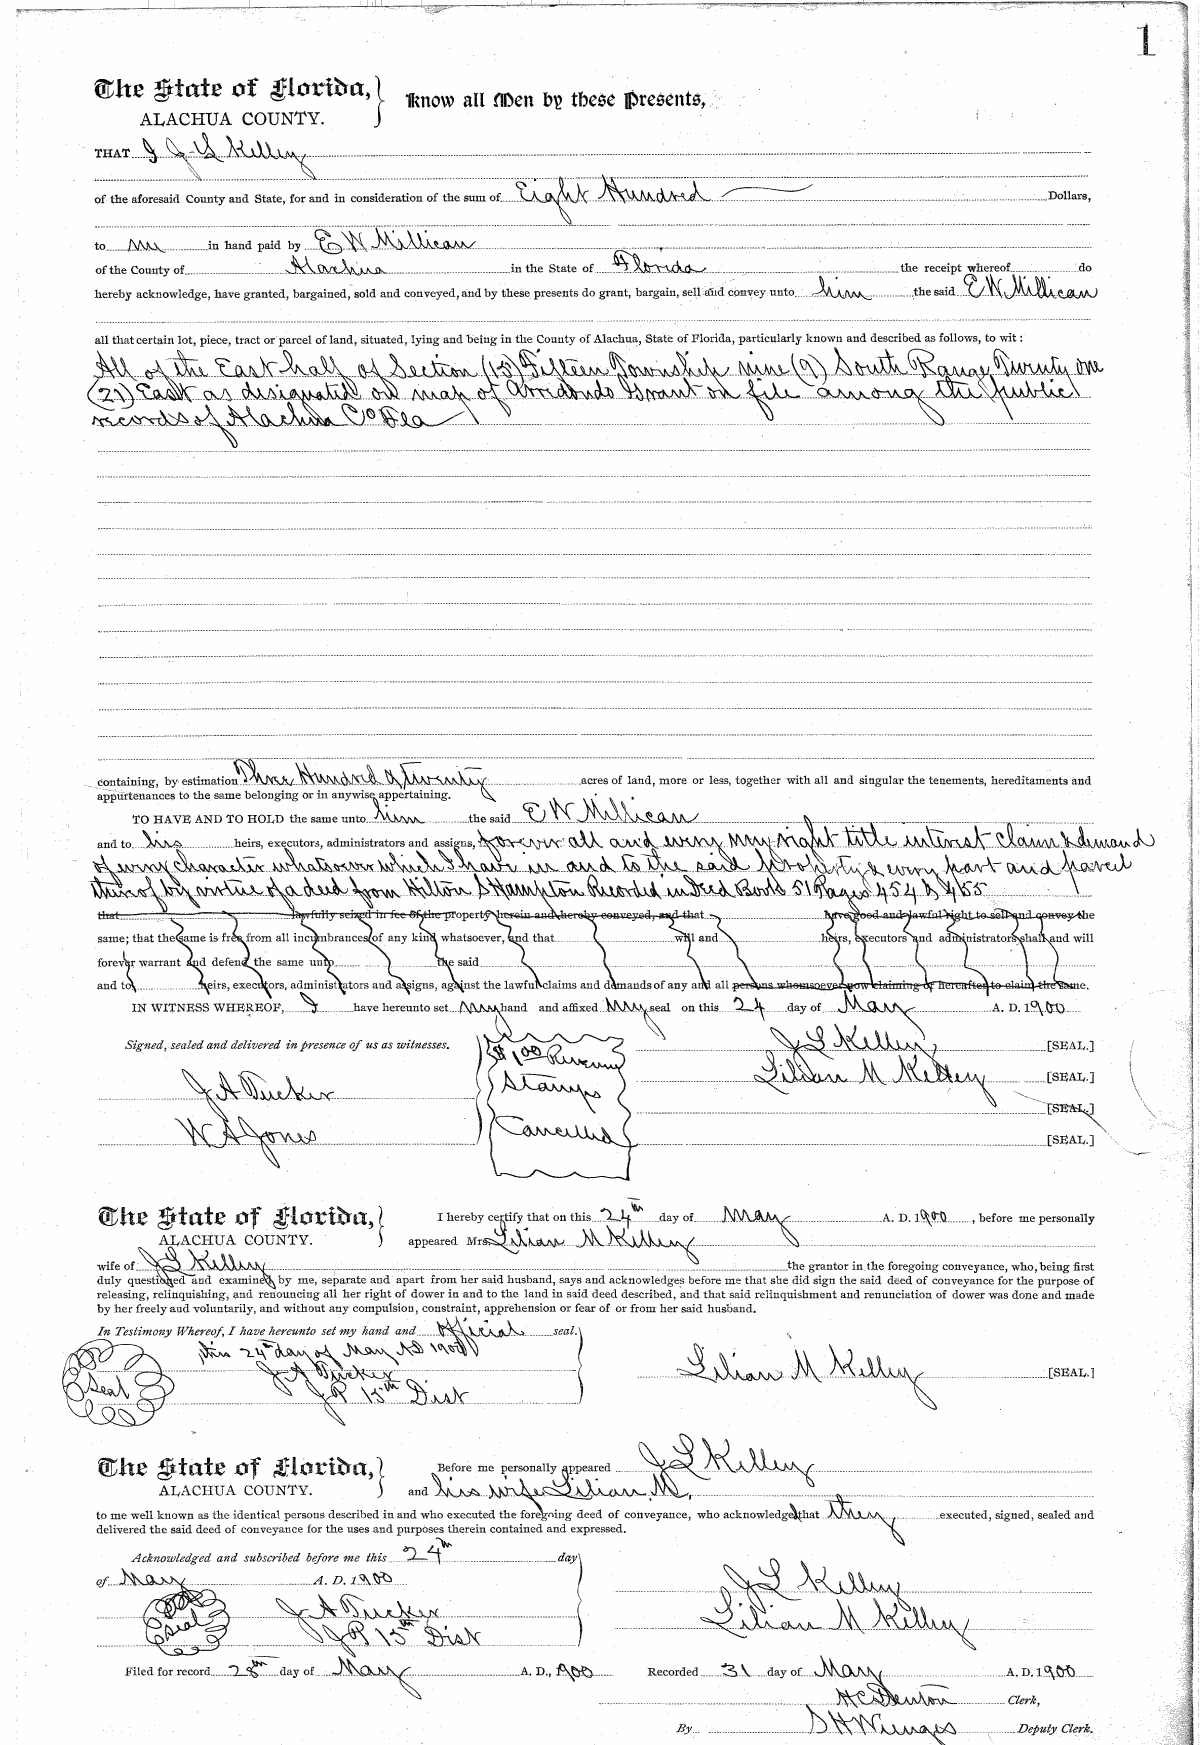 1
The State of Florida, } Know all Men by these Presents,
ALACHUA COUNTY.
THAT I J L Kelley
of the aforesaid County and State, for and in consideration of the sum of Eight Hundred Dollars,
to me in hand paid by E W Millican
of the County of Alachua in the State of Florida the receipt whereof do
hereby acknowledge, have granted, bargained, sold and conveyed, and by these presents do grant, bargain, sell and convey unto him the said E W Millican
all that certain lot, piece, tract or parcel of land, situated, lying and being in the County of Alachua, State of Florida, particularly known and described as follows, to wit :
All of the East half of Section (15) Fifteen Township nine (9) South Range Twenty one
(21) East as designated on map of Arredondo Grant on file among the public
records of Alachua Co Fla
containing, by estimation Three Hundred & twenty acres of land, more or less, together with all and singular the tenements, hereditaments and
appurtenances to the same belonging or in anywise appertaining.
TO HAVE AND TO HOLD the same unto him the said E W Millican
and to his heirs, executors, administrators and assigns, forever all and every my right title interest claim & demand
of every character whatsoever which I have in and to the said property & every part and parcel
thereof by virtue of a deed from Hilton S Hampton Recorded in Deed Book 51 Pages 454 & 455
that lawfully seized in fee of the property herein and hereby conveyed, and that have good and lawful right to sell and convey the
same; that the same is free from all incumbrances of any kind whatsoever, and that will and heirs, executors and administrators shall and will
forever warrant and defend the same unto the said
and to heirs, executors, administrators and assigns, against the lawful claims and demands of any and all persons whomsoever now claiming or hereafter to claim the same.
IN WITNESS WHEREOF, I have hereunto set my hand and affixed my seal on this 24 day of May A. D. 1900
Signed, sealed and delivered in presence of us as witnesses. $1.00 Revenue J L Kelley [SEAL.]
J A Tucker Stamps Lilian M Kelley [SEAL.]
[SEAL.]
W A Jones Cancelled [SEAL.]
The State of Florida, } I hereby certify that on this 24th day of May A. D. 1900, before me personally
ALACHUA COUNTY. appeared Mrs Lilian M Kelley
wife of J L Kelley the grantor in the foregoing conveyance, who, being first
duly questioned and examined by me, separate and apart from her said husband, says and acknowledges before me that she did sign the said deed of conveyance for the purpose of
releasing, relinquishing, and renouncing all her right of dower in and to the land in said deed described, and that said relinquishment and renunciation of dower was done and made
by her freely and voluntarily, and without any compulsion, constraint, apprehension or fear of or from her said husband.
In Testimony Whereof, I have hereunto set my hand and official seal.
this 24th day of May AD 1900
Seal J A Tucker Lilian M Kelley [SEAL.]
JP 15th Dist
The State of Florida, } Before me personally appeared J L Kelley
ALACHUA COUNTY. and his wife Lilian M,
to me well known as the identical persons described in and who executed the foregoing deed of conveyance, who acknowledged that they executed, signed, sealed and
delivered the said deed of conveyance for the uses and purposes therein contained and expressed.
Acknowledged and subscribed before me this 24th day
of May A. D. 1900 J L Kelley
Seal J A Tucker Lilian M Kelley
JP 15th Dist
Filed for record 28th day of May A. D., 1900 Recorded 31 day of May A. D. 1900
H C Denton Clerk,
By S H Wienges Deputy Clerk.